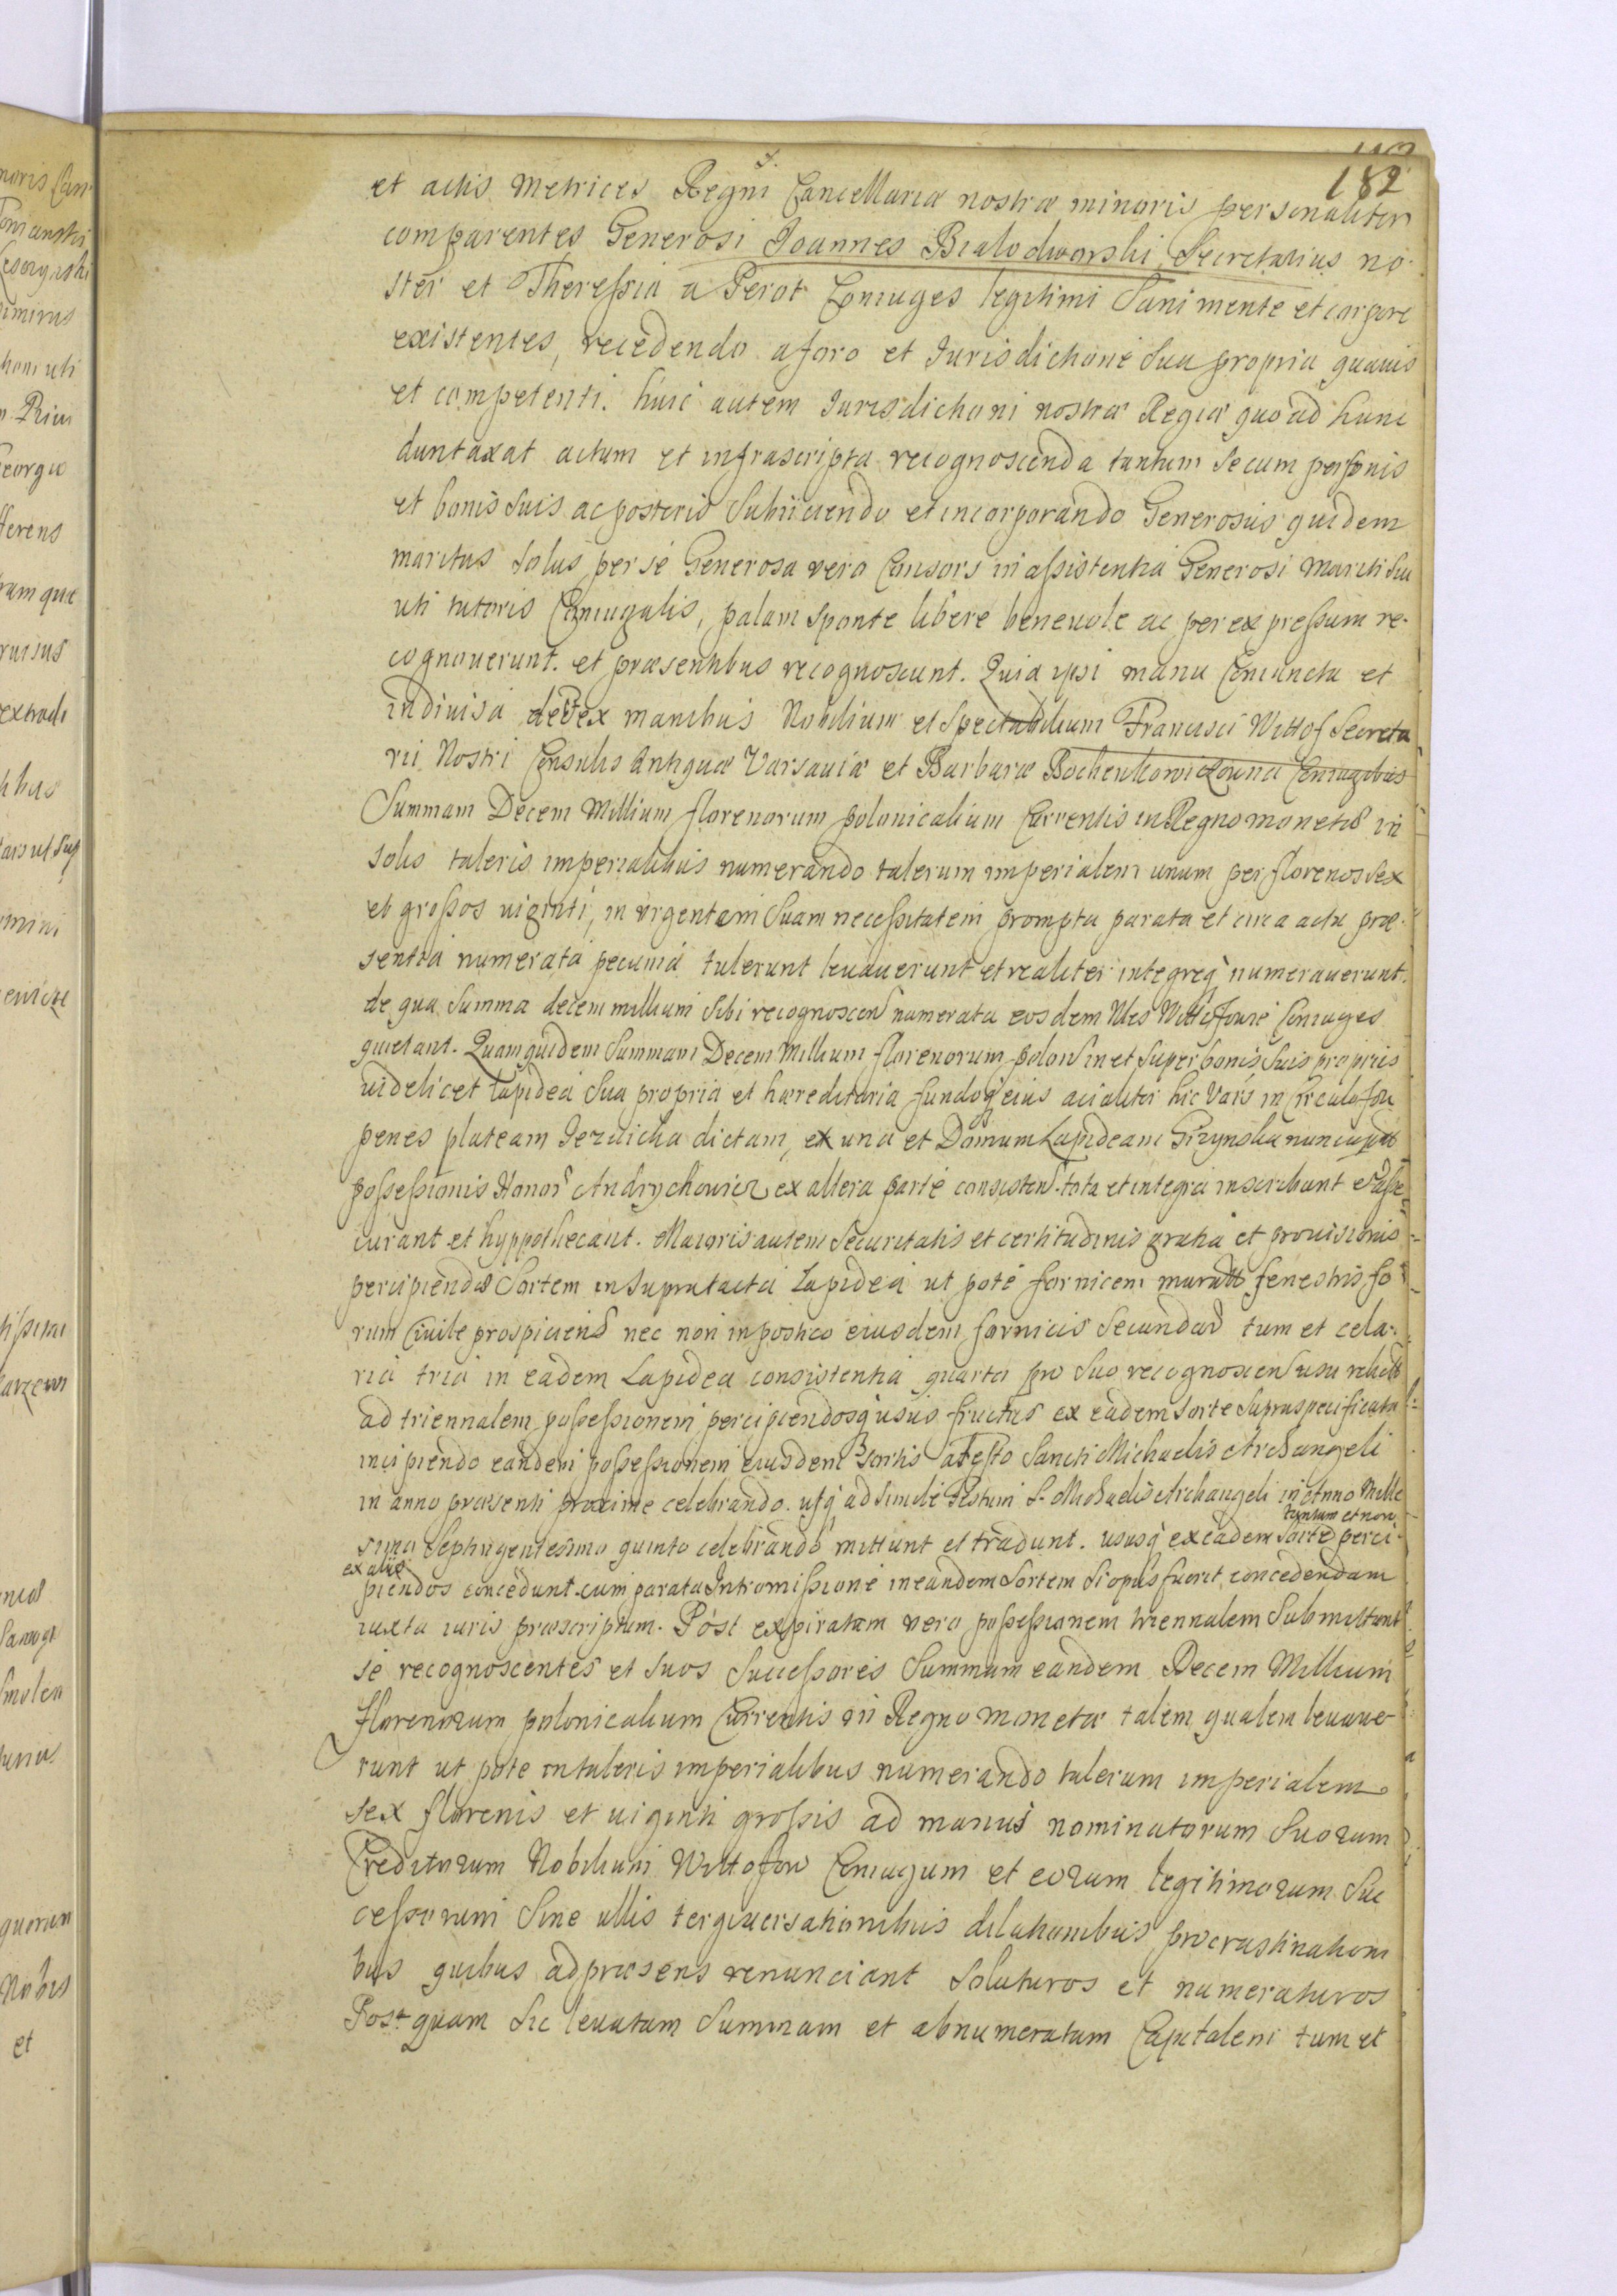 182
et actis Metrices Regni Cancellariæ nostræ minoris personaliter
comparentes Generosi Joannes Bialodworski Secretarius no-
ster et Theressia a Perot Coniuges legitimi Sani mente et corpore
existentes, recedendo a foro et Iurisdictione Sua propria quauis
et competenti. huic autem Iurisdictioni nostræ Regiæ quo ad hunc
duntaxat actum et infrascripta recognoscenda tantum se cum personis
et bonis Suis ac posteris Subiiciendo et incorporando Generosus quidem
maritus Solus per se Generosa vero Consors in assistentia Generosi Mariti Sui
uti tutoris Coniugalis, palam sponte libere beneuole ac per expressum re-
cognouerunt. et præsentibus recognoscunt. Quia ipsi manu Coniuncta et
indiuisa de et ex manibus Nobilium et Spectabilium Francisci Wittof Secreta
rii Nostri Consulis Antiquæ Varsauiæ et Barbaræ Bochenkowiczouna Coniugibus
Summam Decem Millium florenorum polonicalium Currentis in Regno monetæ in
solis taleris imperialibus numerando talerum imperialem unum per florenos sex
et grossos uiginti, in urgentem Suam necessitatem prompta parata et circa acta præ-
sentia numerata pecunia tulerunt leuauerunt et realiter integreq numerauerunt.
de qua Summa decem millium Sibi recognoscen numerata eosdem Nles Coniuges
quietant. Quamquidem Summam Decem Millium florenorum polon in et Super bonis Suis propriis
uidelicet Lapidea Sua propria et hæreditaria fundoq eius hic Vars in Circulo fori
penes plateam Jezuicka dictam, ex una et Domum Lapideam Gizynska
possessionis Honor Andrychowicz ex altera parte consisten tota et integra inscribunt et asse
curant et hyppothecant. Maioris autem Securitatis et certitudinis gratia et prouisionis
percipiendæ Sortem in Supratacta Lapidea ut pote fornicem fenestris fo
rum Ciuile prospiciens nec non in postico eiusdem fornicis Secundad tum et cela-
ria tria in eadem Lapidea consistentia quarta pro Suo recognoscen usu
ad triennalem possessionem percipiendosq usus fructus ex eadem sorte Supraspecificata
incipiendo eandem possessionem eiusdem Sortis a Festo Sancti Michaelis Archangeli
in anno præsenti proxime celebrando. usq ad Simile Festum S. Michaelis Archangeli in Anno Mille
tantum et non
simo Septingentesimo quinto celebrando mittunt et tradunt. ususq ex eadem sorte perci-
ex aliis
piendos concedunt cum parata Intromissione in eandem Sortem Si opus fuerit concedendam
iuxta iuris præscriptum. Post expiratam vero possessionem triennalem Submittunt
se recognoscentes et Suos Successores Summam eandem Decem Millium
florenorum polonicalium Currentis in Regno Monetæ talem qualem leuaue-
runt ut pote in taleris imperialibus numerando talerum imperialem
sex florenis et uiginti grossis ad manus nominatorum Suorum
Creditorum Nobilium Wittofow Coniugum et eorum legitimorum Suc
cessorum Sine ullis tergiuersationibus dilationibus procrastinationi
bus quibus ad præsens renunciant Soluturos et numeraturos
Post quam Sic leuatam Summam et abnumeratam Capitalem tum et